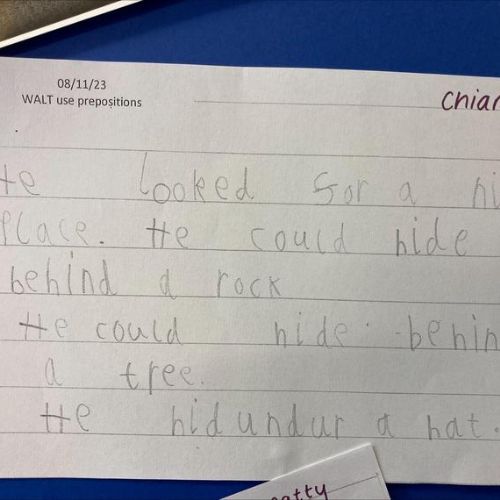 08/11/23
WALT use prepositions
Chiar
He looked for a hi
place. He could hide
behind a rock
He could hide behin
a tree.
He hid undur a hat.
atty